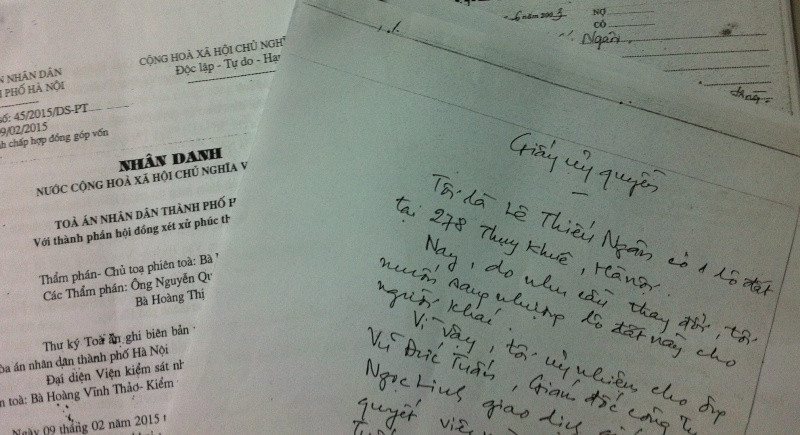 N NHÂN DÂN
PHỐ HÀ NỘI
CỘNG HOÀ XÃ HỘI CHỦ NGHĨ
Độc lập - Tự do - Hạ
số: 45/2015/DS-PT
9/02/2015
nh chấp hợp đồng góp vốn
NHÂN DANH
NƯỚC CỘNG HOÀ XÃ HỘI CHỦ NGHĨA V
TOÀ ÁN NHÂN DÂN THÀNH PHỐ H
Với thành phần hội đồng xét xử phúc th
Thẩm phán- Chủ toạ phiên toà: Bà
Các Thẩm phán: Ông Nguyễn Qu
Bà Hoàng Thị
Thư ký Toà án ghi biên bản
òa án nhân dân thành phố Hà Nội
Đại diện Viện kiểm sát nh
n toà: Bà Hoàng Vĩnh Thảo- Kiểm
Ngày 09 tháng 02 năm 2015
NỢ
CÓ
Ngân
Giấy uỷ quyền
Tôi là Lê Thiếu Ngân có 1 lô đất
tại 278 Thụy Khuê, Hà Nội.
Nay, do nhu cầu thay đổi, tôi
muốn sang nhượng lô đất này cho
người khác.
Vì vậy, tôi uỷ nhiệm cho ông
Vũ Đức Tuấn, Giám đốc công ty
Ngọc Linh giao dịch
quyết